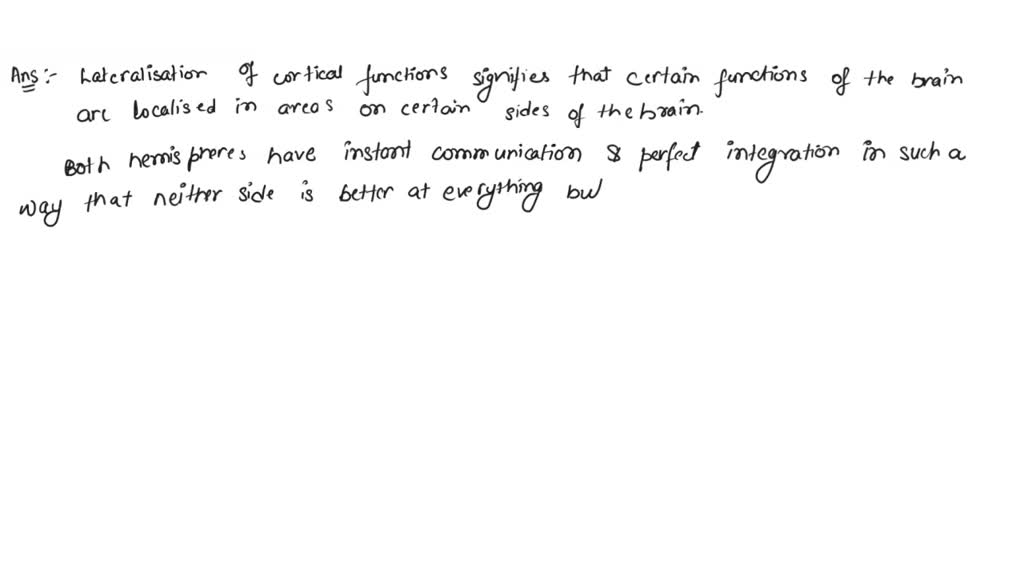 Ans:- Lateralisation of cortical functions signifies that certain functions of the brain
are localised in areas on certain sides of the brain.
Both hemispheres have instant communication & perfect integration in such a
way that neither side is better at everything bu